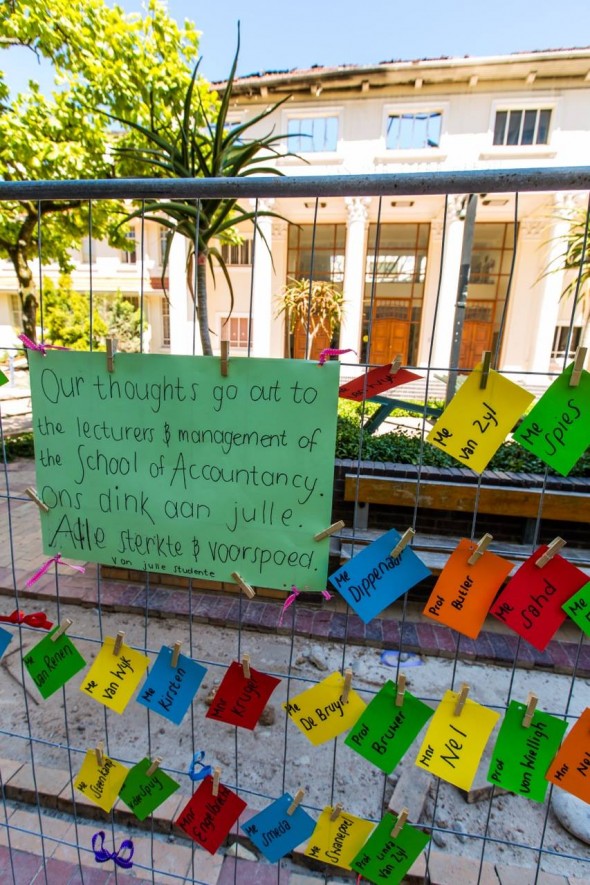 Our thoughts go out to
the lecturers & management of
the School of Accountancy.
Ons dink aan julle.
Alle sterkte & voorspoed.
Van julle studente
Me
van Zyl
Me
Spies
Me
Dippenaar
Prof
Butler
Me
Sand
Me
van Renen
Me
van Wyk
Me
Kirsten
Mnr
Kruger
Me
De Bruyn
Prof
Bruwer
Mnr
Nel
Prof
von Wielligh
Mnr
Nel
Me
van Spuy
Mnr
Engelbrecht
Me
Smeda
Me
Prof Linda
van Zyl